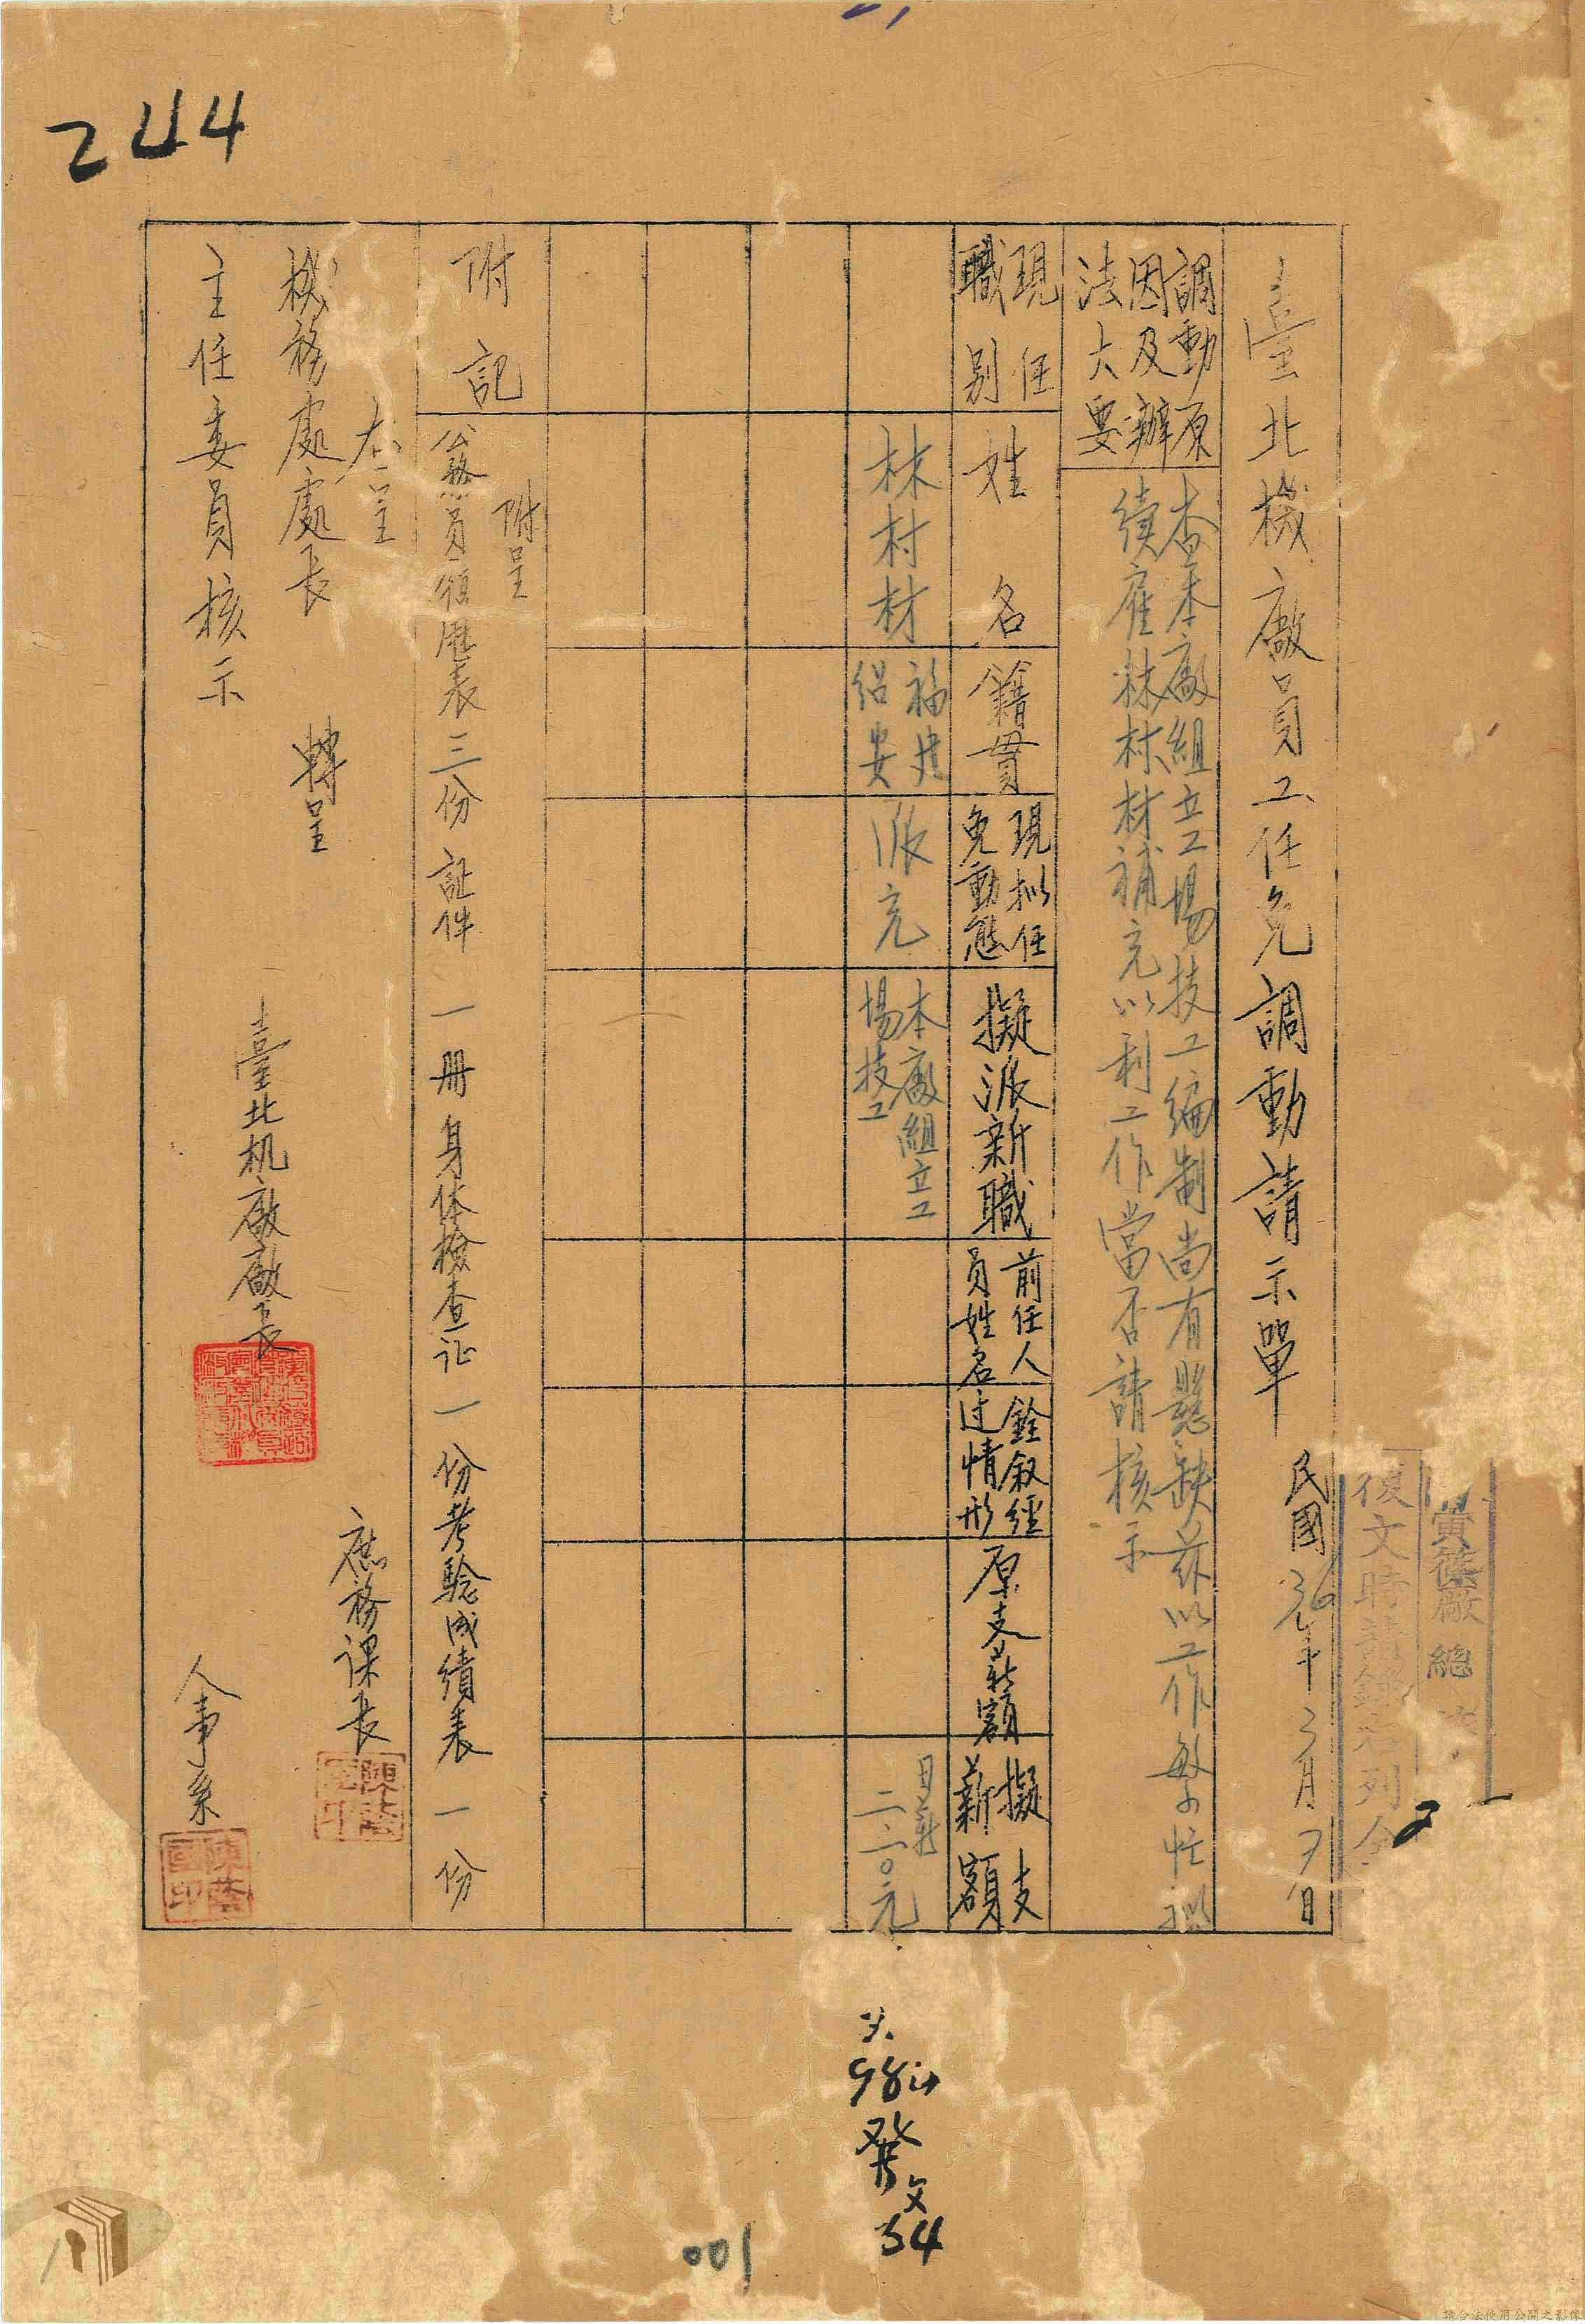 244
臺北機廠員工任免調動請示單
民國36年3月7日
復文時請錄列
寅徙廠總
調動原
因及辦
法大要
查本廠組立工場技工編制尚有懸缺茲以工作繁多忙擬
續雇林村材補充以利工作當否請核示
現任
職別
姓名
籍貫
現拟任
免動態
擬派新職
前任人
員姓名
銓叙經
过情形
原支薪額
擬支
薪額
林村材
福建
紹安
派充
本廠組立工
場技工
日薪
二二〇元
附記
附呈
公務員履歷表三份証件一册身体檢查证一份考驗成績表一份
右呈
機務處處長 轉呈
主任委員核示
臺北机廠廠長
庶務課長
人事系
984
發文
34
001
請合法使用公開之影像